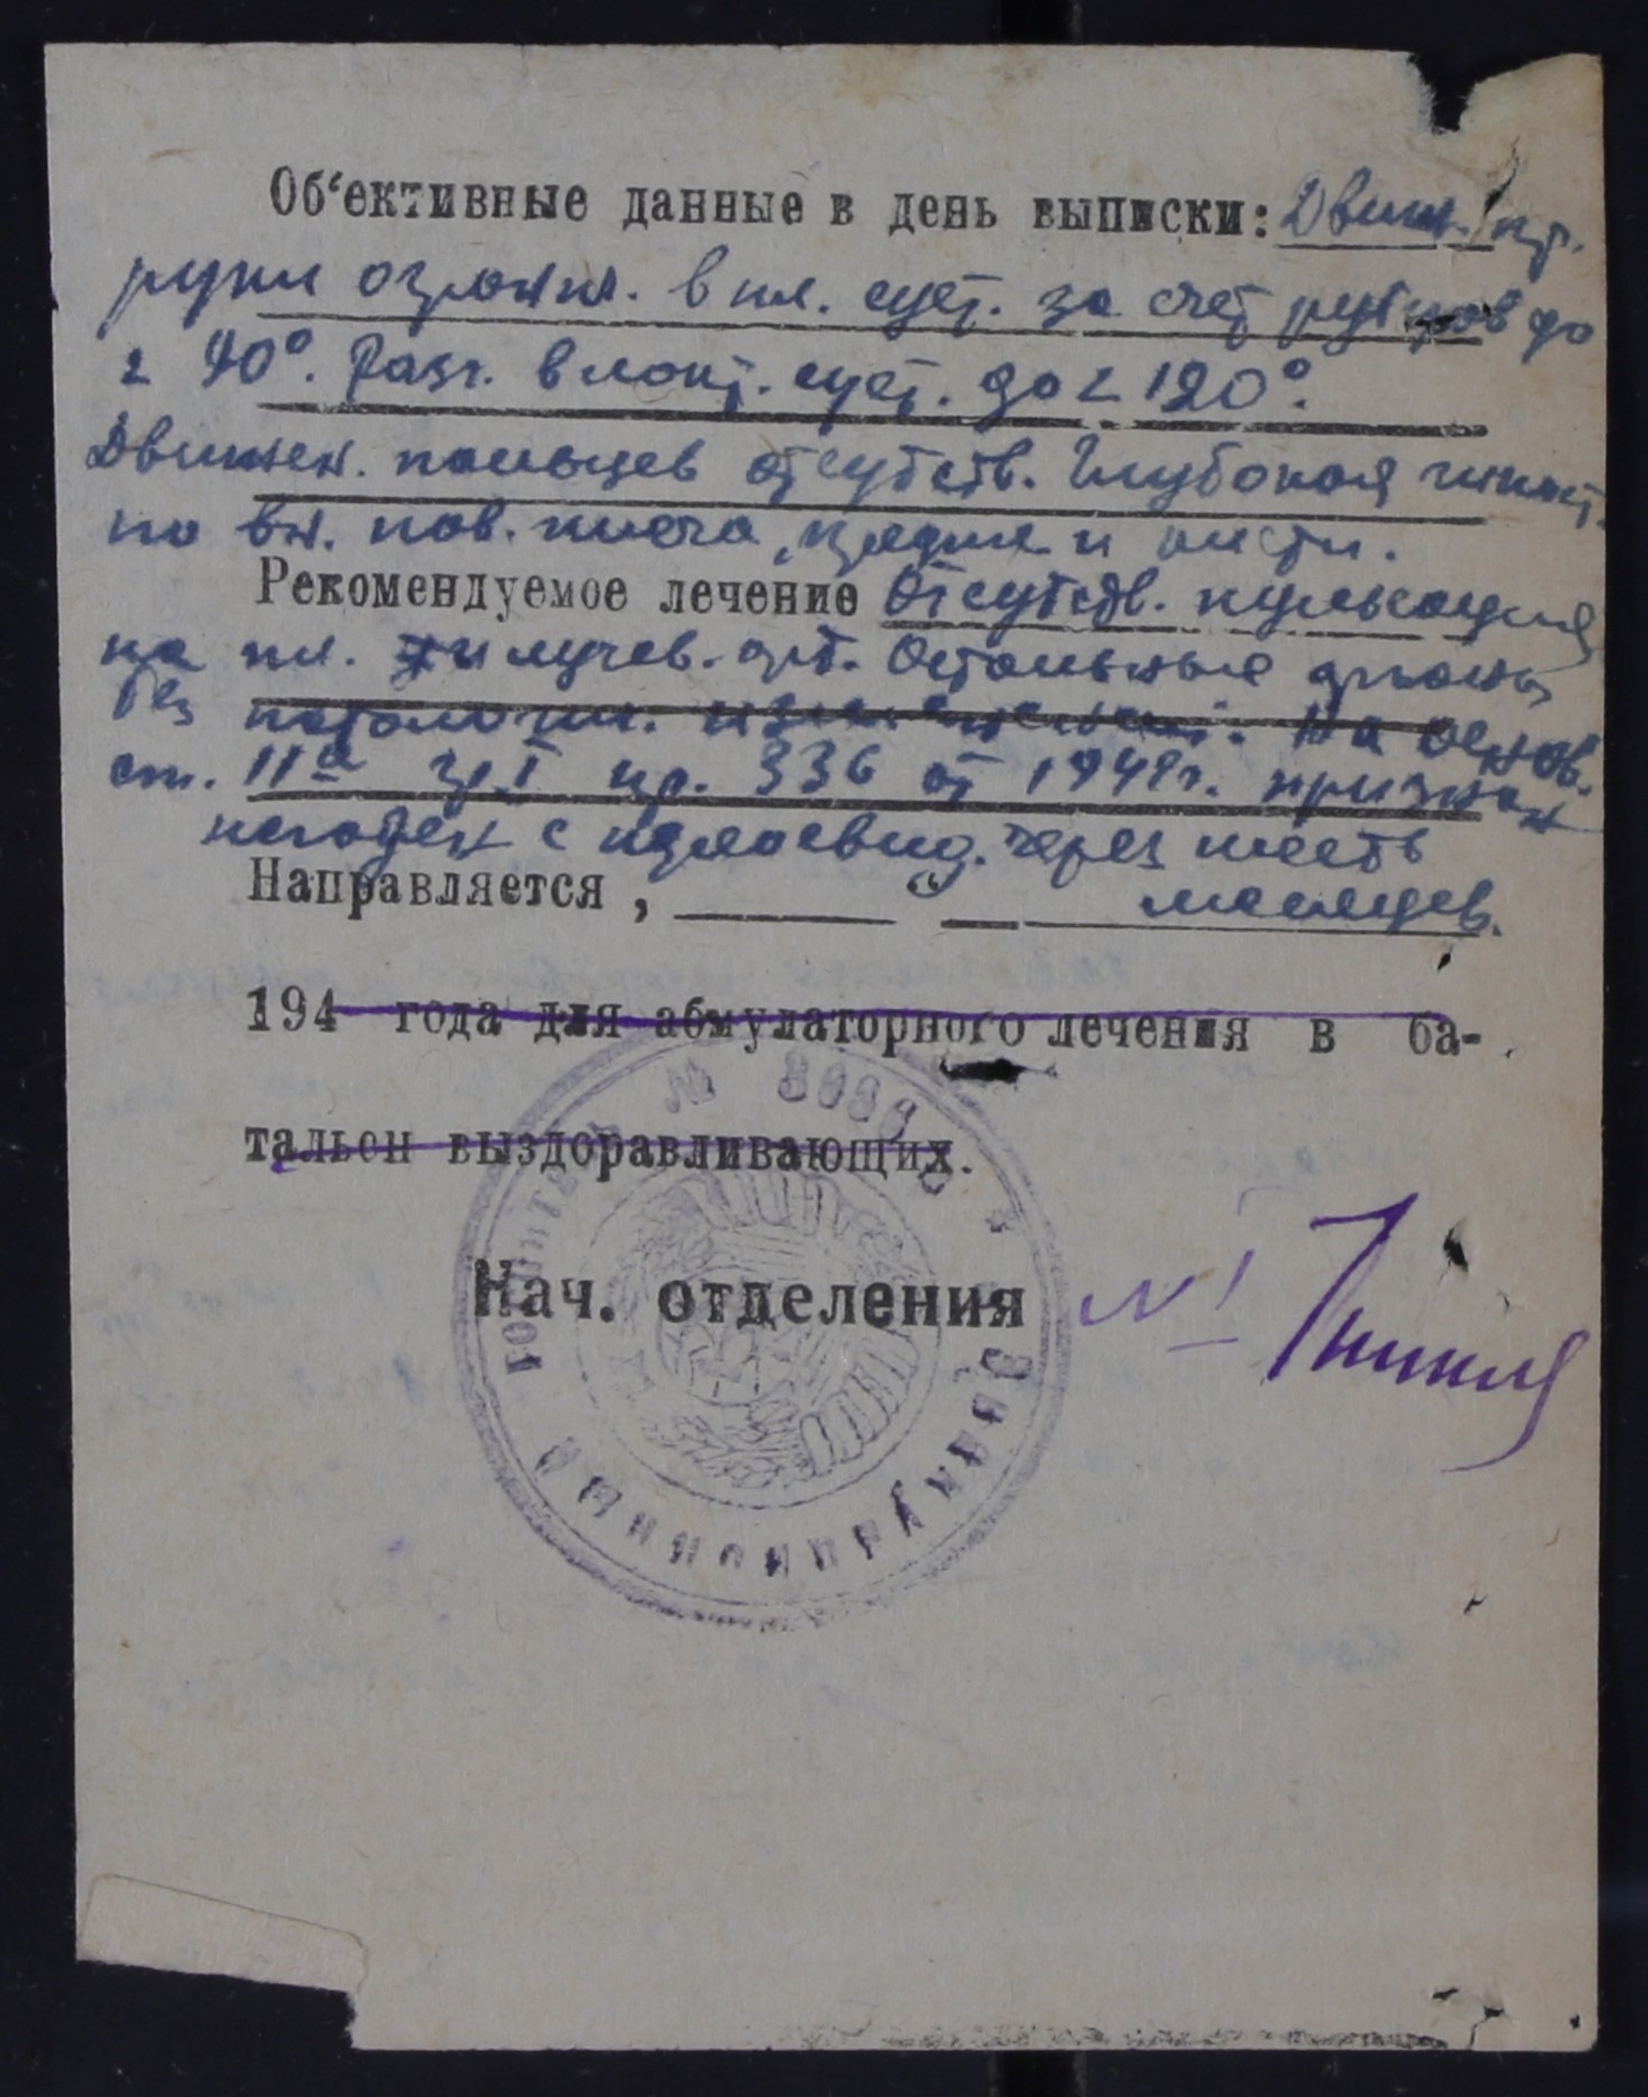 Об‘ективные данные в день выписки: Движ. пр.
руки огранич. в пл. суст. за счет рубцов до
∠ 90°. Разг. в локт. суст. до ∠ 120°.
Движен. пальцев отсутств. Глубокая
по вн. пов. плеча, предпл. и кисти.
Рекомендуемое лечение Отсутств. пульсация
на пл. и лучев. арт. Остальные органы
без патологич. На основ.
ст. 11а гр. I пр. 336 от 1942г. признан
негоден с переосвид. через шесть
Направляется, “ месяцев.
194 года для абмулаторного лечения в ба-
тальон выздоравливающих.
Нач. отделения N 1
№
Эвакуационный